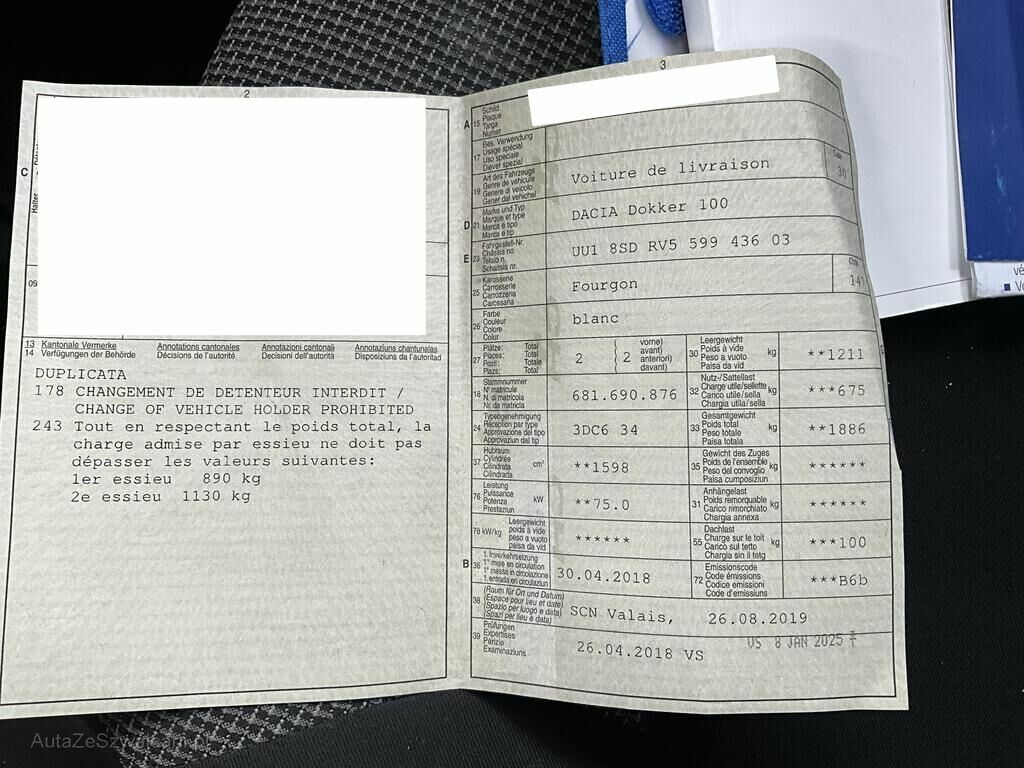 2
C
Halter
09
13 Kantonale Vermerke Annotations cantonales Annotazioni cantonali Annotaziuns chantunalas
14 Verfügungen der Behörde Décisions de l'autorité Decisioni dell'autorità Disposiziuns da l'autoritad
DUPLICATA
178 CHANGEMENT DE DETENTEUR INTERDIT /
CHANGE OF VEHICLE HOLDER PROHIBITED
243 Tout en respectant le poids total, la
charge admise par essieu ne doit pas
dépasser les valeurs suivantes:
1er essieu 890 kg
2e essieu 1130 kg
3
A 15 Schild
Plaque
Targa
Numer
17 Bes. Verwendung
Usage spécial
Uso speciale
Diever spezial
19 Art des Fahrzeugs
Genre de véhicule
Genere di veicolo
Gener dal vehichel
Voiture de livraison
Code
30
D 21 Marke und Typ
Marque et type
Marca e tipo
Marca e tip
DACIA Dokker 100
E 23 Fahrgestell-Nr.
Châssis no
Telaio n.
Schassis nr.
UU1 8SD RV5 599 436 03
25 Karosserie
Carrosserie
Carrozzeria
Carossaria
Fourgon
Code
147
26 Farbe
Couleur
Colore
Colur
blanc
27 Plätze: Total
Places: Total
Posti: Totale
Plazs: Total
2 { 2 vorne)
avant)
anteriori)
davant)
30 Leergewicht
Poids à vide
Peso a vuoto
Paisa da vid
kg **1211
18 Stammnummer
N° matricule
N. di matricola
Nr. da matricla
681.690.876
32 Nutz-/Sattellast
Charge utile/sellette
Carico utile/sella
Chargia utila/sella
kg ***675
24 Typengenehmigung
Réception par type
Approvazione del tipo
Approvaziun dal tip
3DC6 34
33 Gesamtgewicht
Poids total
Peso totale
Paisa totala
kg **1886
37 Hubraum
Cylindrée
Cilindrata
Cilindrada
cm³ **1598
35 Gewicht des Zuges
Poids de l'ensemble
Peso del convoglio
Paisa cumposiziun
kg ******
76 Leistung
Puissance
Potenza
Prestaziun
kW **75.0
31 Anhängelast
Poids remorquable
Carico rimorchiato
Chargia annexa
kg ******
78 kW/kg Leergewicht
poids à vide
peso a vuoto
paisa da vid
******
55 Dachlast
Charge sur le toit
Carico sul tetto
Chargia sin il tetg
kg ***100
B 36 1. Inverkehrsetzung
1re mise en circulation
1a messa in circolazione
1. entrada en circulaziun
30.04.2018
72 Emissionscode
Code émissions
Codice emissioni
Code d'emissiuns
***B6b
38 (Raum für Ort und Datum)
(Espace pour lieu et date)
(Spazio per luogo e data)
(Spazi per lieu e data)
SCN Valais, 26.08.2019
39 Prüfungen
Expertises
Perizie
Examinaziuns
26.04.2018 VS
VS 8 JAN 2025